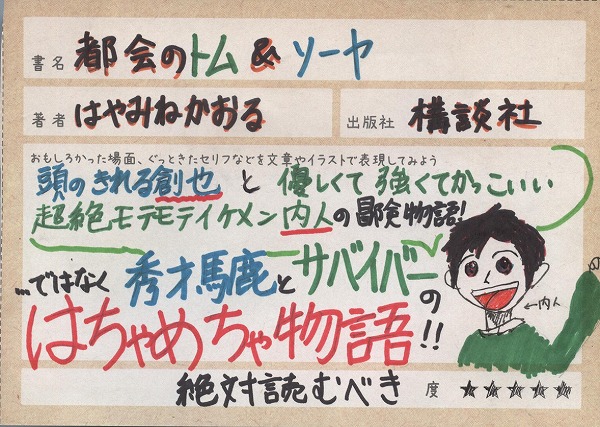 書名 都会のトム&ソーヤ
著者 はやみねかおる 出版社 構談社
おもしろかった場面、ぐっときたセリフなどを文章やイラストで表現してみよう
頭のきれる創也と優しくて強くてかっこいい
超絶モテモテイケメン内人の冒険物語!
…ではなく秀才馬鹿とサバイバーの
はちゃめちゃ物語!!
←内人
絶対読むべき 度 ★★★★★